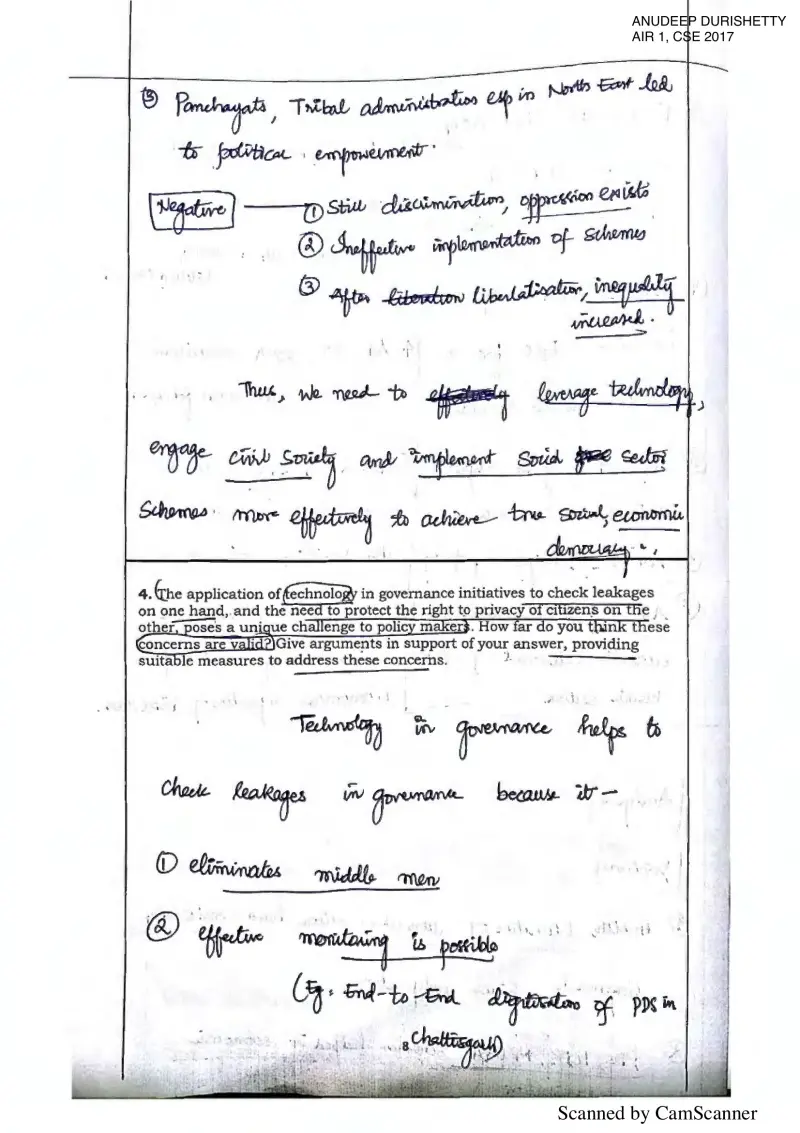 ANUDEEP DURISHETTY
AIR 1, CSE 2017
③ Panchayats, Tribal administration esp in North East led
to political empowerment.
Negative — ① Still discrimination, oppression exists
② Ineffective implementation of schemes
③ After liberation liberlatisation, inequality
increased.
Thus, we need to effectively leverage technology,
engage civil society and implement social sector
schemes more effectively to achieve true social, economic
democracy.
4. The application of technology in governance initiatives to check leakages
on one hand, and the need to protect the right to privacy of citizens on the
other, poses a unique challenge to policy makers. How far do you think these
concerns are valid? Give arguments in support of your answer, providing
suitable measures to address these concerns.
Technology in governance helps to
check leakages in governance because it —
① eliminates middle men
② effective monitoring is possible
(Eg: End-to-End digitisation of PDS in
Chattisgarh)
8
Scanned by CamScanner